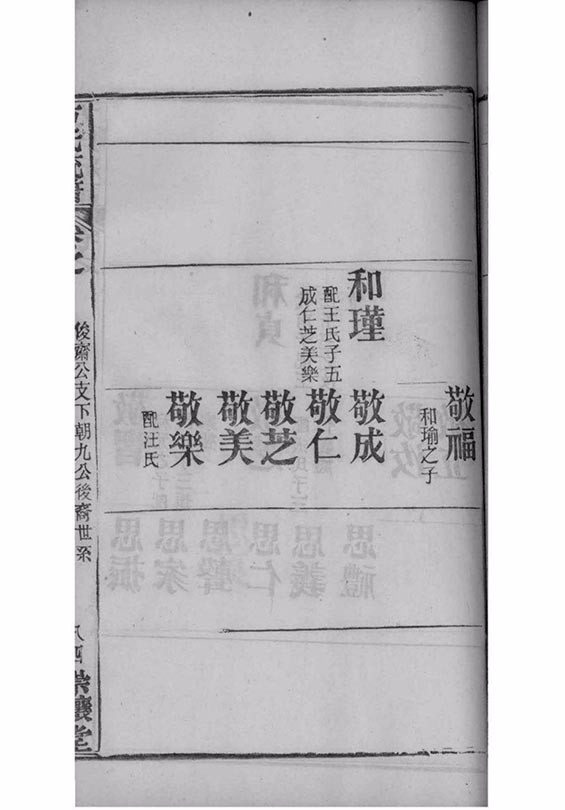 敬福
和瑜之子
和瑾
配王氏子五
成仁芝美樂
敬成
敬仁
敬芝
敬美
敬樂
配汪氏
後齋公支下朝九公後裔世系
堂